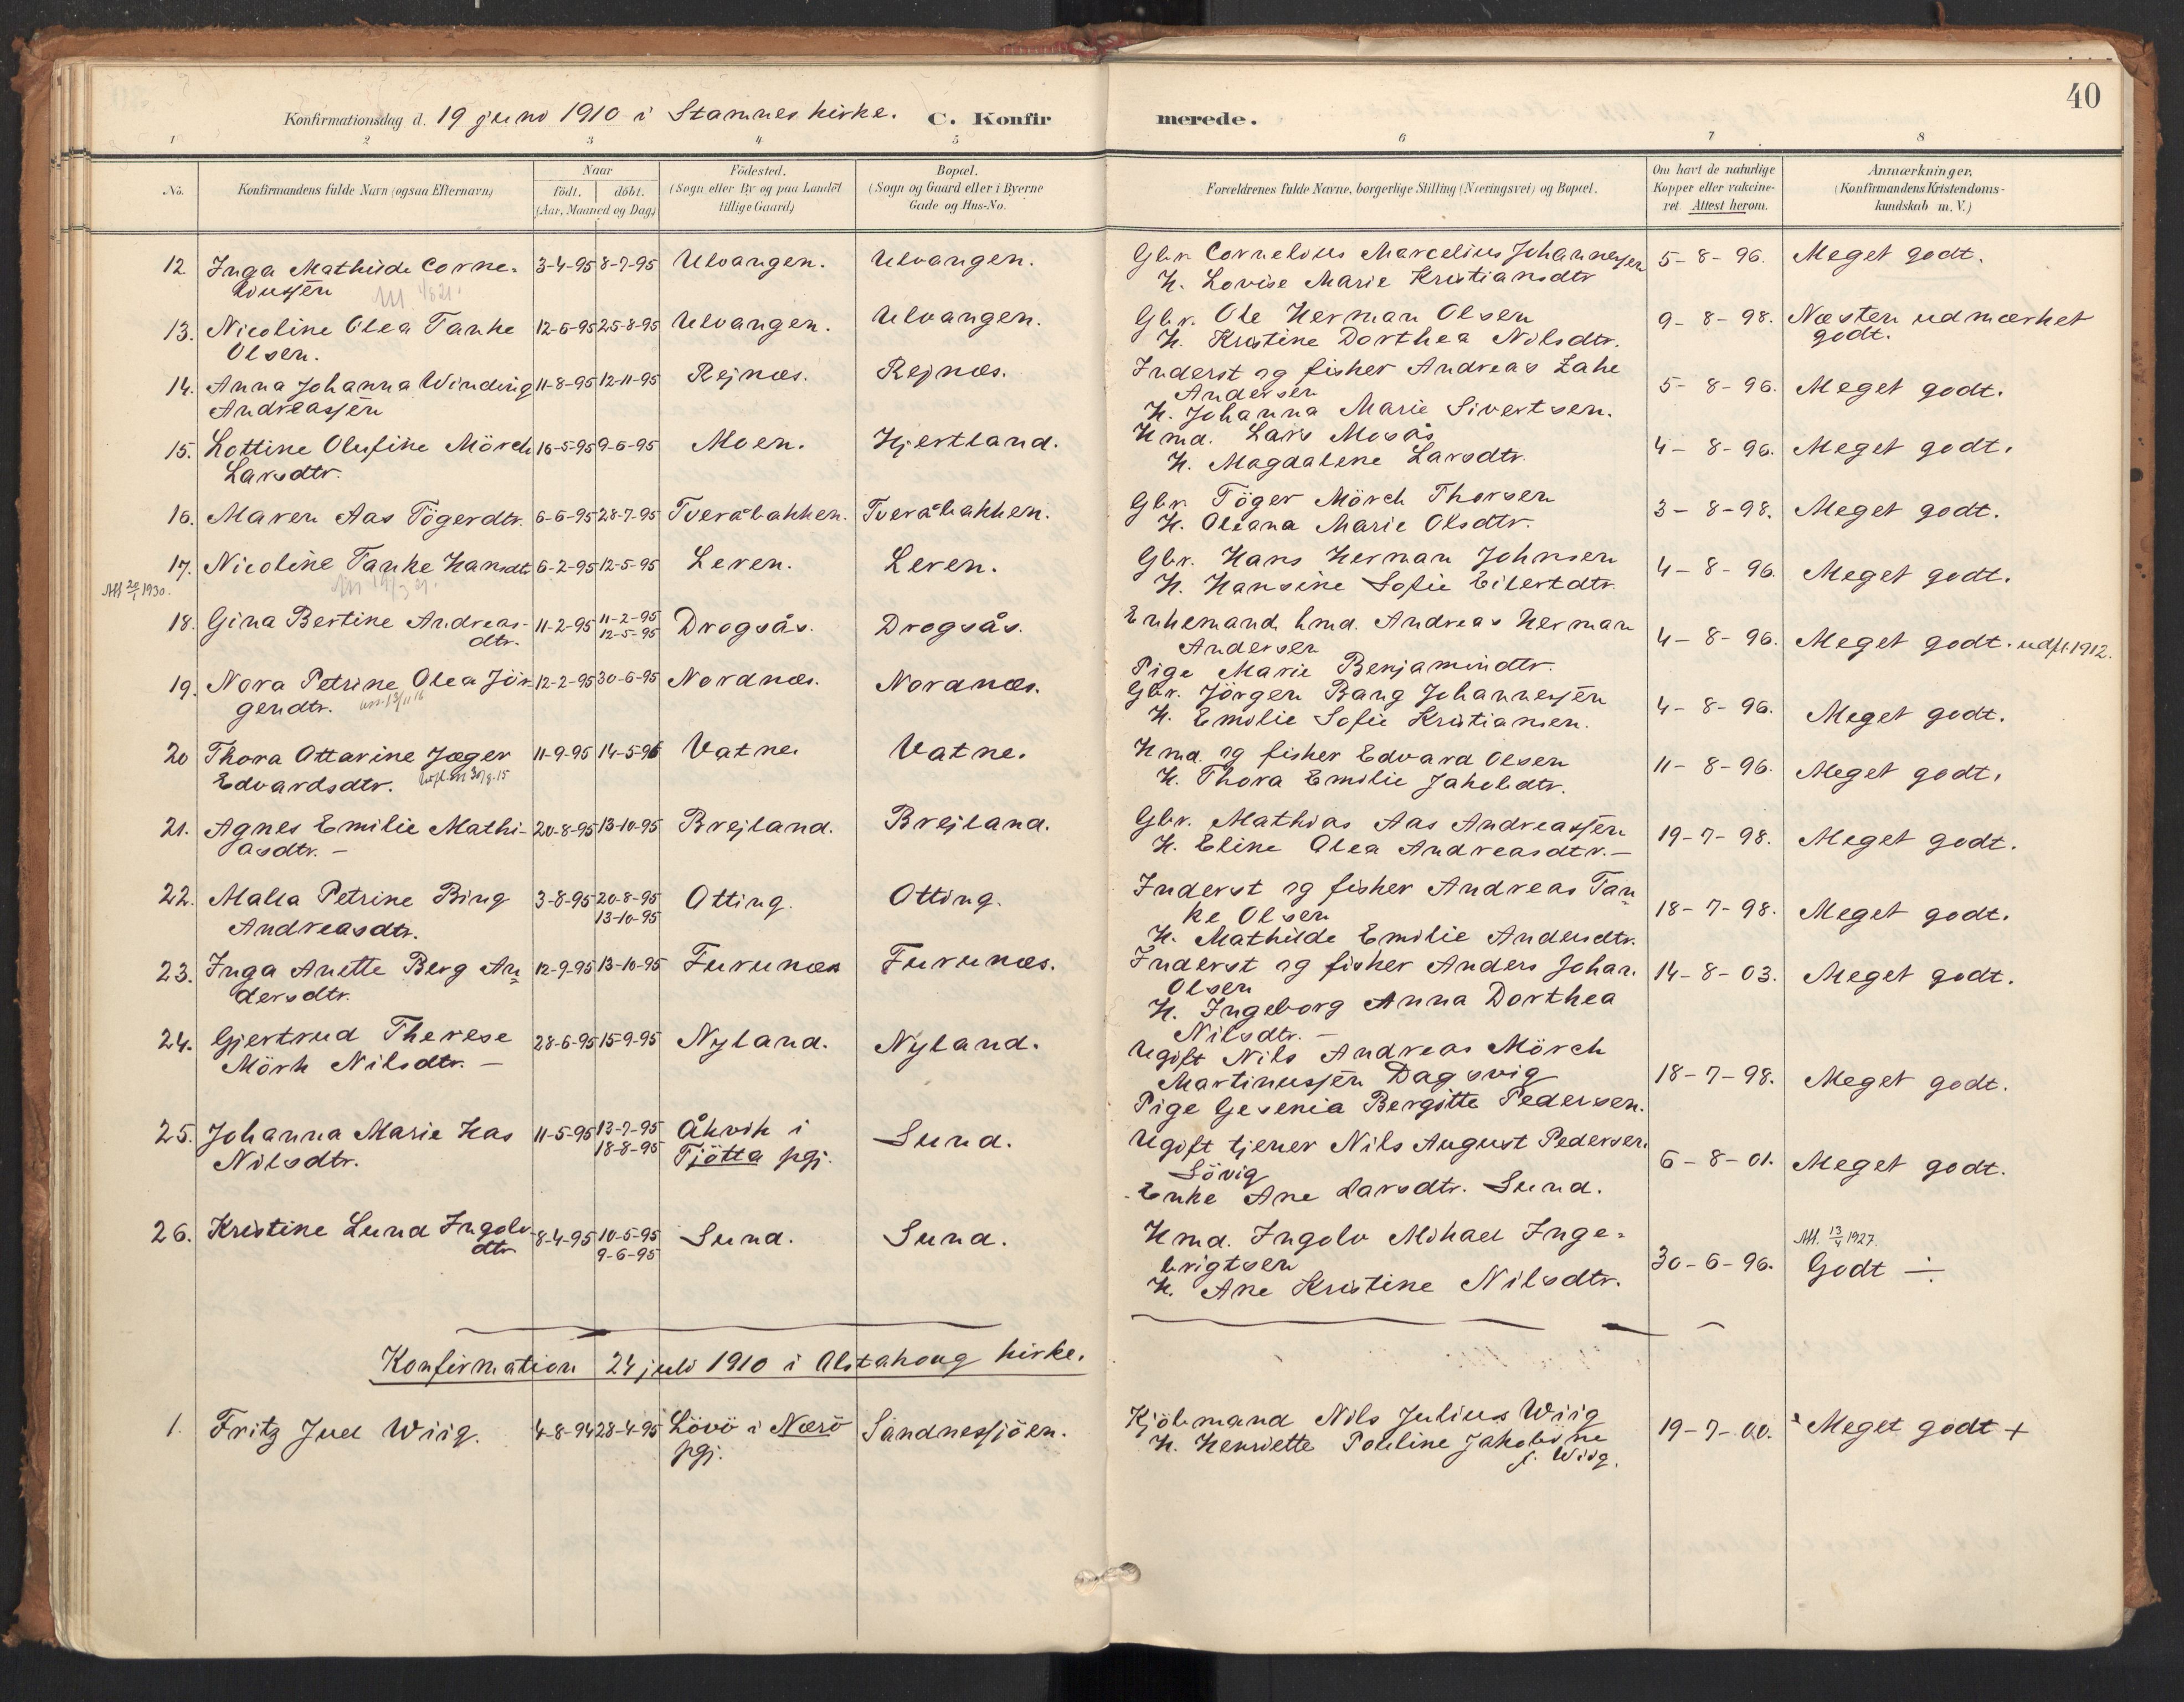 40
Konfirmationsdag d. 19 juni 1910 i Stamnes kirke. C. Konfirmerede.
1 2 3 4 5 6 7 8
No. Konfirmandens fulde Navn (ogsaa Efternavn)
Naar
født. døbt.
(Aar, Maaned og Dag)
Fødested.
(Sogn eller By og paa Landet
tillige Gaard)
Bopæl.
(Sogn og Gaard eller i Byerne
Gade og Hus-No.
Forældrenes fulde Navne, borgerlige Stilling (Næringsvei) og Bopæl.
Om havt de naturlige
Kopper eller vakcine-
ret. Attest herom.
Anmærkninger.
(Konfirmandens Kristendoms-
kundskab m. V.)
12 Inga Mathilde Corne- 3-4-95 8-7-95 Ulvangen. Ulvangen. Gbr. Cornelius Marcelius Johannessen 5-8-96. Meget godt.
liussen H. Lovise Marie Kristiansdtr
13. Nicoline Olea Tanke 12-6-95 25-8-95 Ulvangen. Ulvangen. Gbr. Ole Herman Olsen 9-8-98. Næsten udmærket
Olsen. H. Kristine Dorthea Nilsdtr. godt.
14. Anna Johanna Winding 11-8-95 12-11-95 Rejnæs. Rejnæs. Inderst og fisker Andreas Zahe 5-8-96. Meget godt.
Andreassen Andersen
H. Johanna Marie Sivertsen.
15. Lottine Olufine Mörch 16-5-95 9-6-95 Moen. Hjertland. Hmd. Lars Mosås 4-8-96. Meget godt.
Larsdtr. H. Magdalene Larsdtr.
16. Maren Aas Tögerdtr. 6-6-95 28-7-95 Tveråbakken. Tveråbakken. Gbr. Töger Mörch Thorsen 3-8-98. Meget godt.
H. Oleana Marie Olsdtr.
17. Nicoline Tanke Hansdtr 6-2-95 12-5-95 Leren. Leren. Gbr. Hans Herman Johnsen 4-8-96. Meget godt.
Att 20/1 1930. H. Hansine Sofie Eilertdtr.
18. Gina Bertine Andreas- 11-2-95 11-2-95 Drogsås. Drogsås. Enkemand hmd. Andreas Herman 4-8-96. Meget godt. udft. 1912.
dtr. 12-5-95 Andersen
Pige Marie Benjamindtr.
19. Nora Petrine Olea Jör- 12-2-95 30-6-95 Nordnæs. Nordnæs. Gbr. Jörgen Bang Johannessen 4-8-96. Meget godt.
gendtr. H. Emilie Sofie Kristiansen.
20 Thora Ottarine Jæger 11-9-95 14-5-96 Vatne. Vatne. Hmd. og fisker Edvard Olsen 11-8-96. Meget godt.
Edvardsdtr. H. Thora Emilie Jakobdtr.
21. Agnes Emilie Mathi- 20-8-95 13-10-95 Brejland. Brejland. Gbr. Mathias Aas Andreassen 19-7-98. Meget godt.
asdtr. - H. Eline Olea Andreasdtr. -
22. Malla Petrine Bing 3-8-95 20-8-95 Otting. Otting. Inderst og fisker Andreas Tan- 18-7-98. Meget godt.
Andreasdtr. 13-10-95 ke Olsen
H. Mathilde Emilie Andersdtr.
23. Inga Anette Berg An- 12-9-95 13-10-95 Furunæs Furunæs. Inderst og fisker Anders Johan. 14-8-03. Meget godt.
dersdtr. Olsen
H. Ingeborg Anna Dorthea
Nilsdtr. -
24. Gjertrud Therese 28-6-95 15-9-95 Nyland. Nyland. Ugift Nils Andreas Mörch 18-7-98. Meget godt.
Mörk Nilsdtr. - Martinussen Dagsvig
Pige Gesenia Bergitte Pedersen.
25. Johanna Marie Has 11-5-95 13-7-95 Åkvik i Sund. Ugift tjener Nils August Pedersen. 6-8-01. Meget godt.
Nilsdtr. 18-8-95 Tjötta pgj. Lövig
Enke Ane Larsdtr. Sund.
26. Kristine Lund Ingolv- 8-4-95 10-5-95 Sund. Sund. Hmd. Ingolv Mikael Inge- 30-6-96. Att. 13/4 1927.
dtr 9-6-95 brigtsen Godt ÷
H. Ane Kristine Nilsdtr.
Konfirmation 24 juli 1910 i Alstahoug kirke.
1. Fritz Juel Wiig. 4-8-94 28-4-95 Lövö i Nærö Sandnessjöen. Kjöbmand Nils Julius Wiig 19-7-00. Meget godt +
pgj. H. Henriette Pouline Jakobine
f. Wiig.